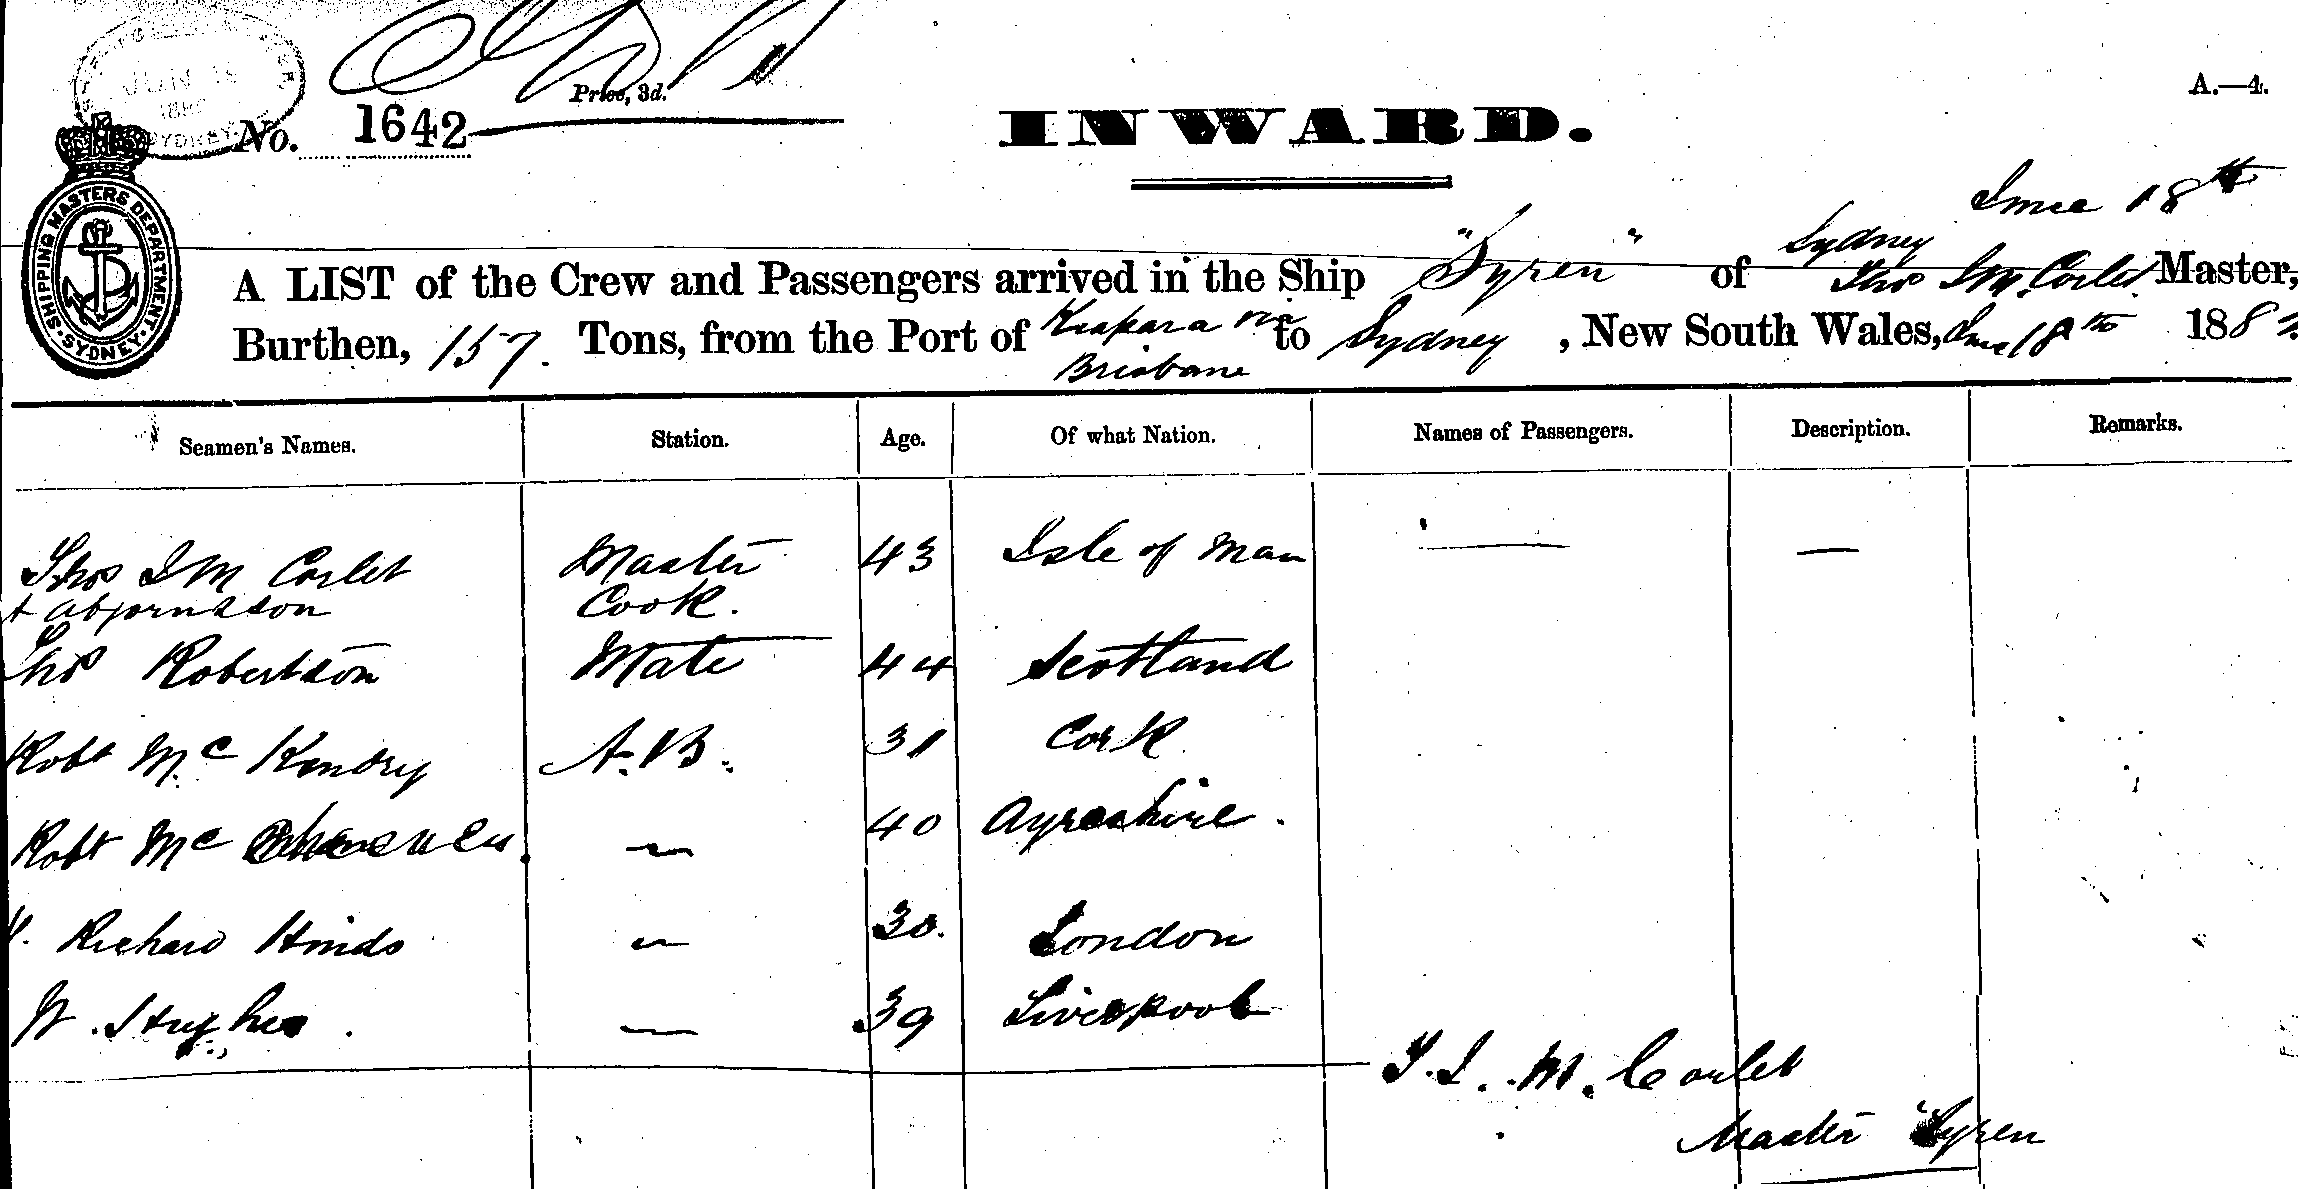 JUN 18
SYDNEY
Price, 3d.
A.—4.
No. 1642
INWARD.
SHIPPING MASTERS DEPARTMENT. SYDNEY
June 18th
Sydney
A LIST of the Crew and Passengers arrived in the Ship "Syren" of Thos I M. Corlet Master,
Burthen, 157. Tons, from the Port of Kiapara via Brisbane to Sydney, New South Wales, June 18th 188
Seamen's Names. Station. Age. Of what Nation. Names of Passengers. Description. Remarks.
Thos I M Corlet Master 43 Isle of Man — —
A Abjornsson Cook.
Thos Robertson Mate 44 Scotland
Robt Mc Kendry A.B. 31 Cork
Robt Mc — 40 Ayreshire.
Richard Hinds — 30. London
W. Hughes. — 39 Liverpool
T. I. M. Corlet
Master Syren